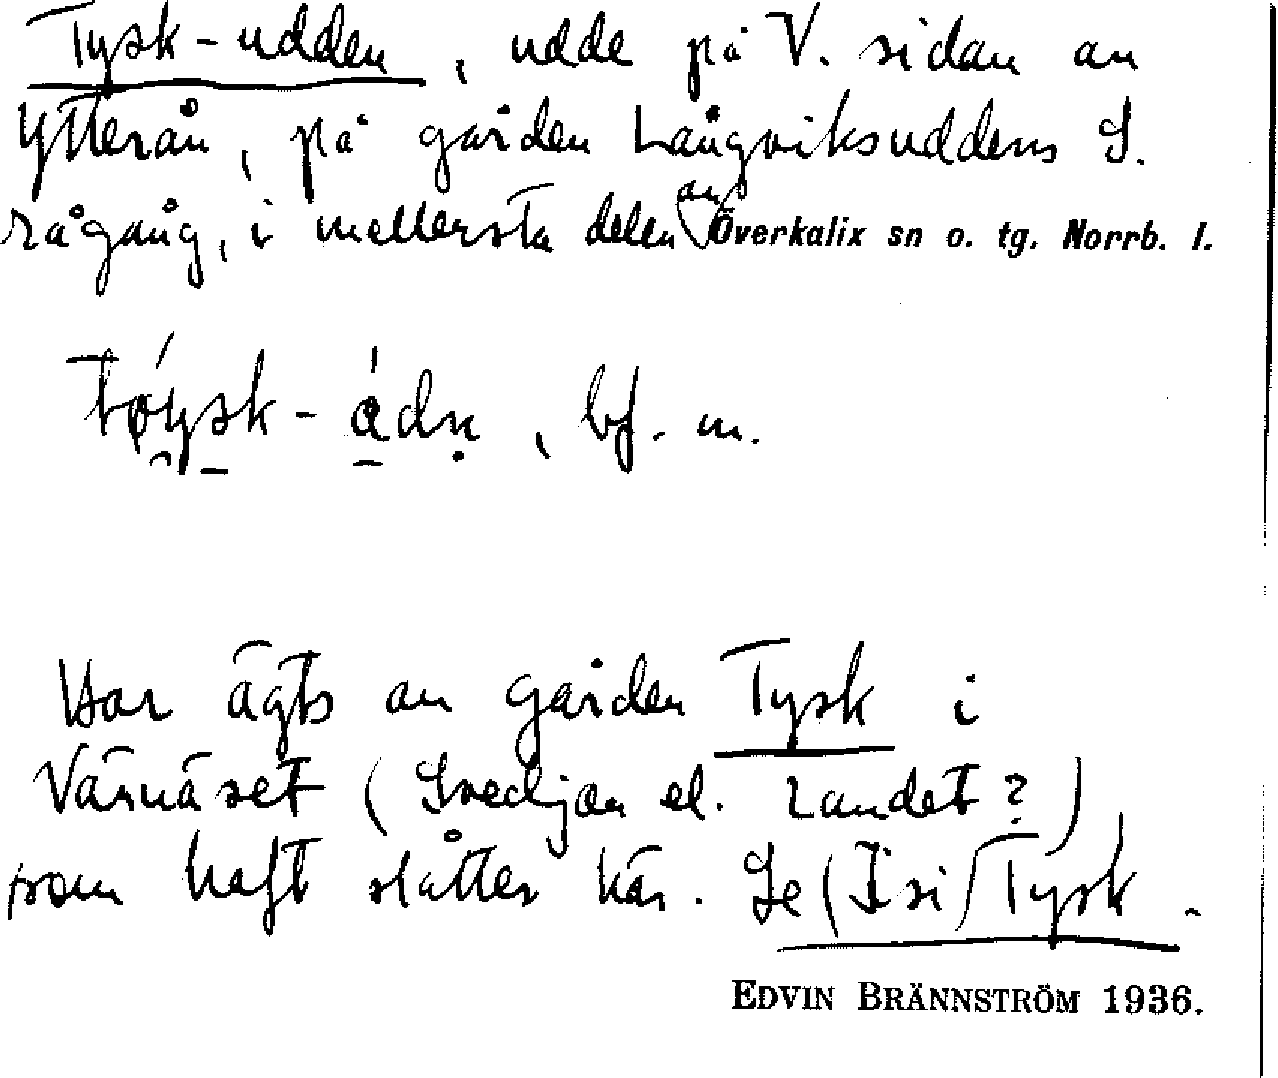 Tysk-udden, udde på V. sidan av
Ytterån, på gården Långviksuddens S.
rågång, i mellersta delen av Överkalix sn o. tg. Norrb. l.
bf. m.
Har ägts av gården Tysk i
Värnäset (Svedjan el. Landet?)
som haft slåtter här. Se (Isi) Tysk.
EDVIN BRÄNNSTRÖM 1936.